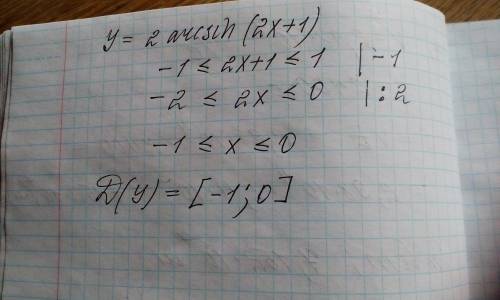 y = 2 arcsin (2x+1)
-1 ≤ 2x+1 ≤ 1 | -1
-2 ≤ 2x ≤ 0 | : 2
-1 ≤ x ≤ 0
D(y) = [-1; 0]